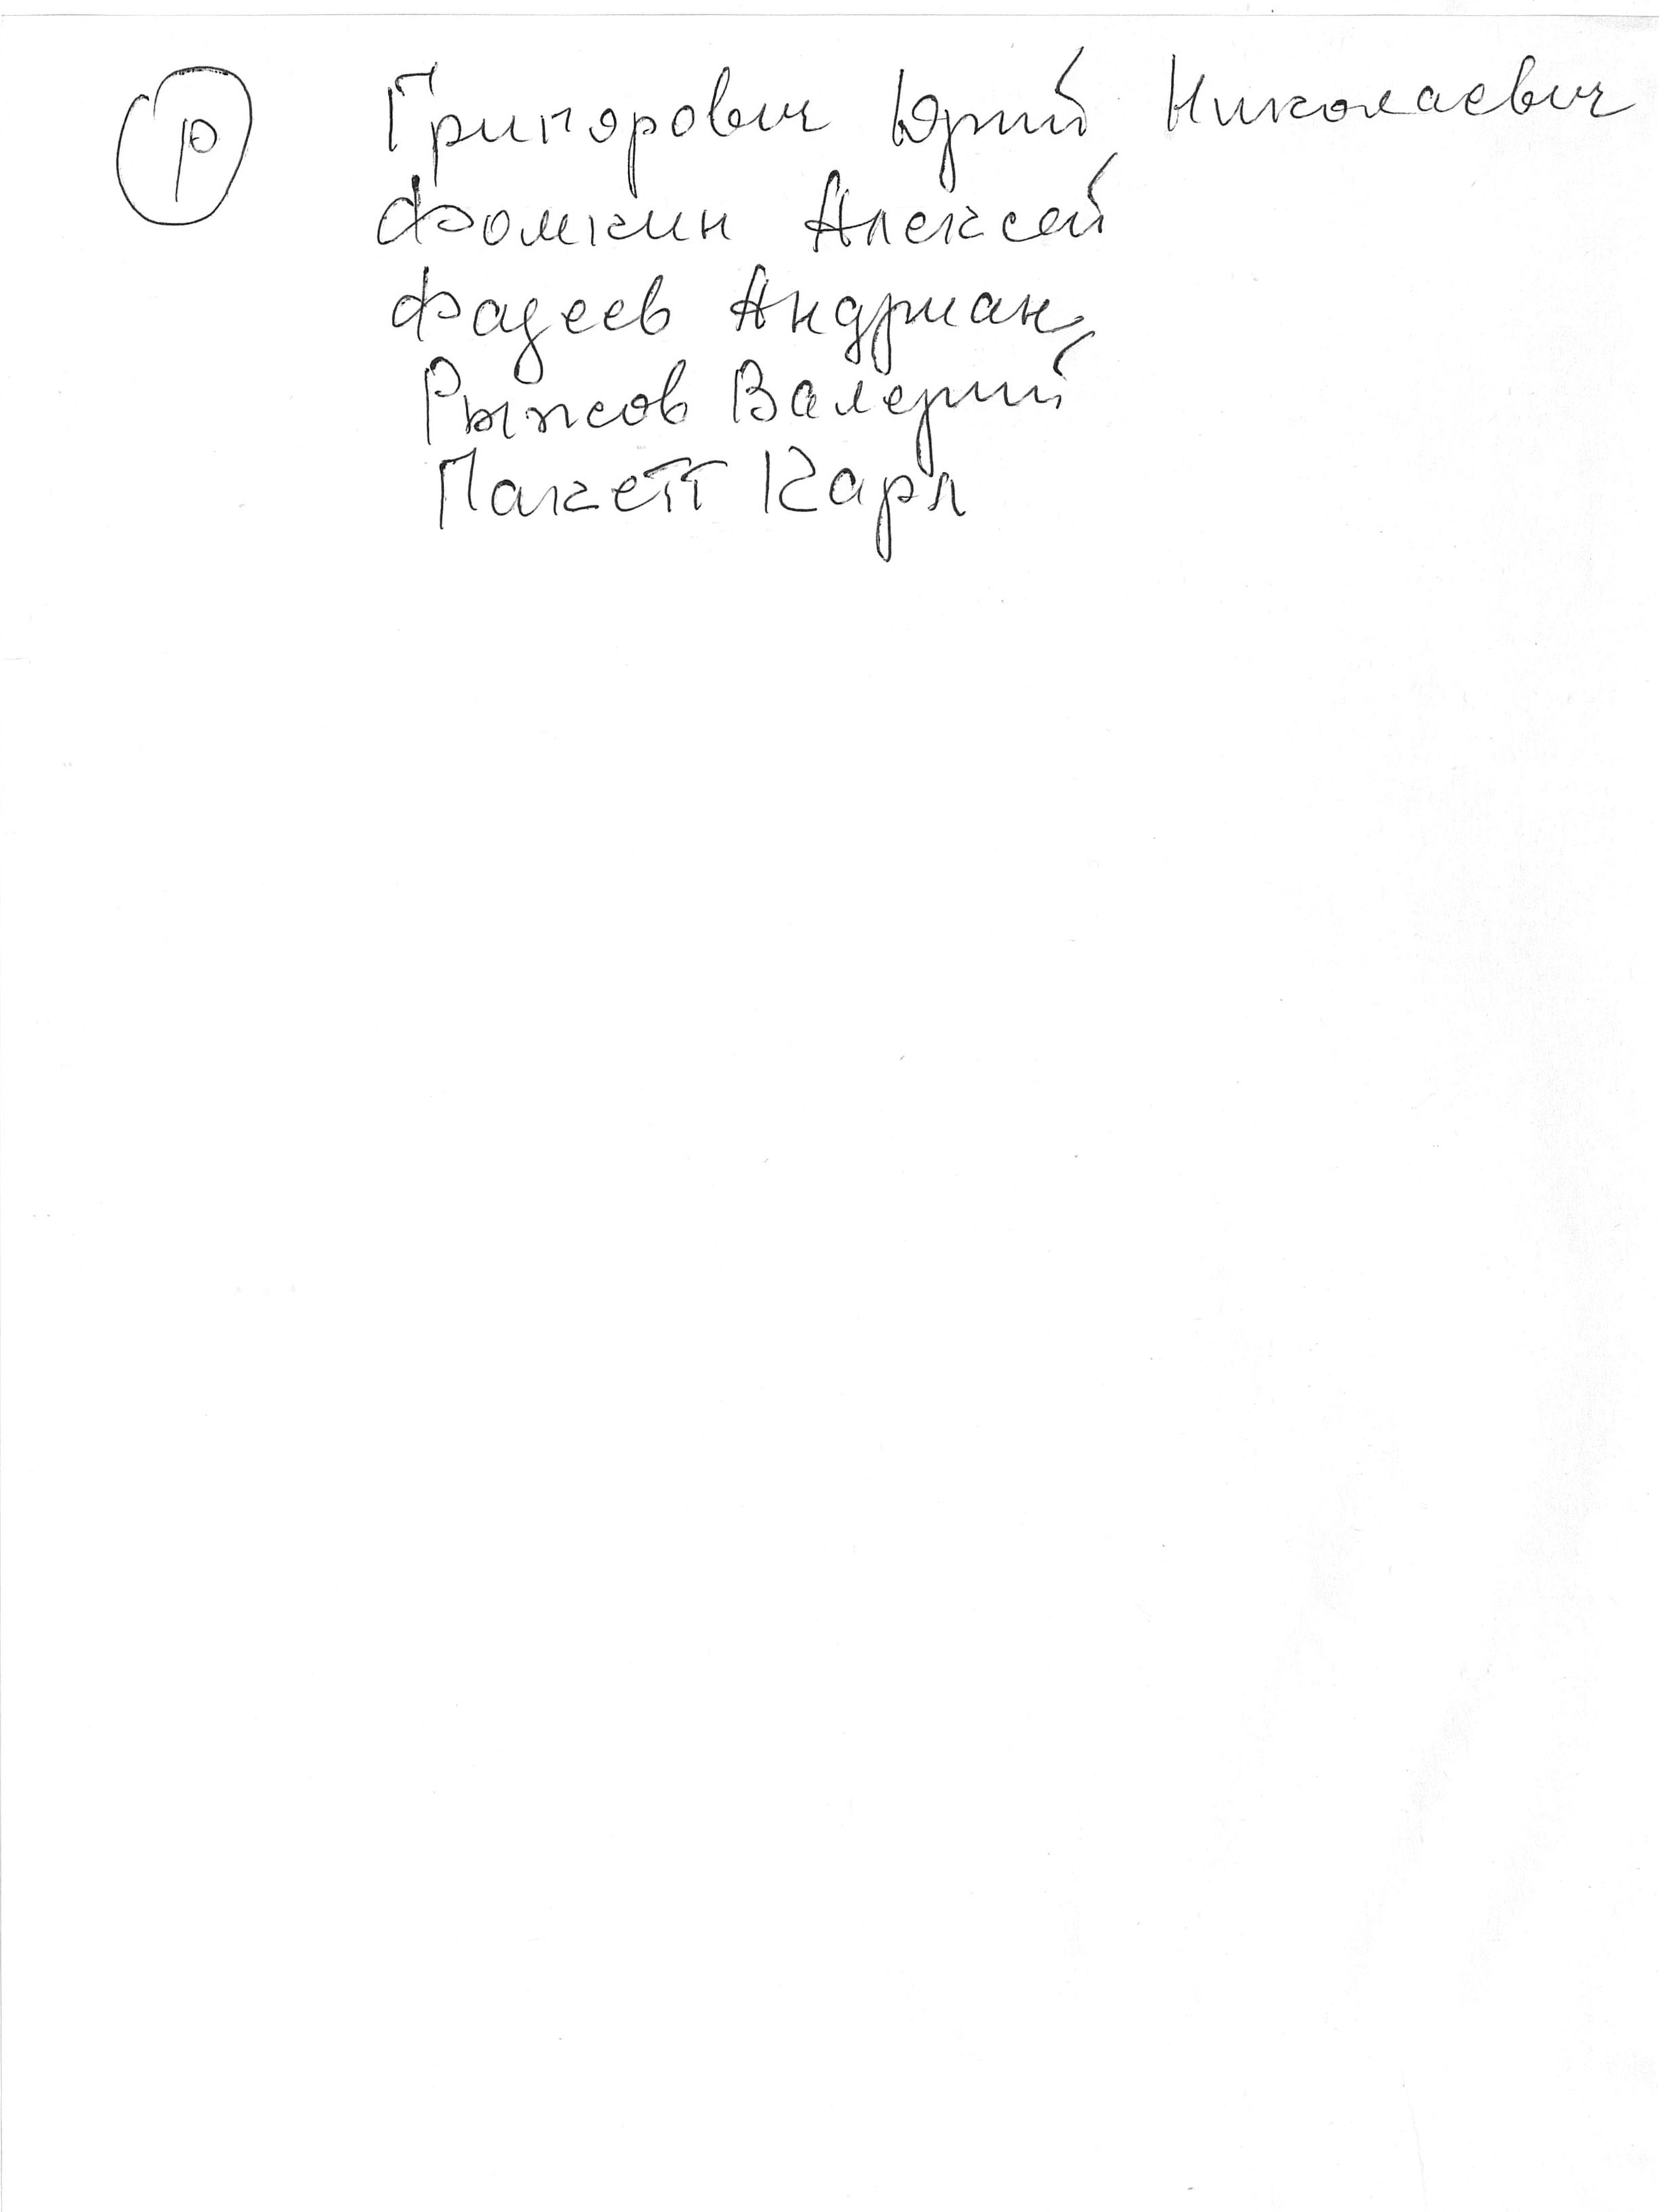 Р Григорович Юрий Николаевич
Фомкин Алексей
Фадеев Андриан
Рыжов Валерий
Пакетт Карл